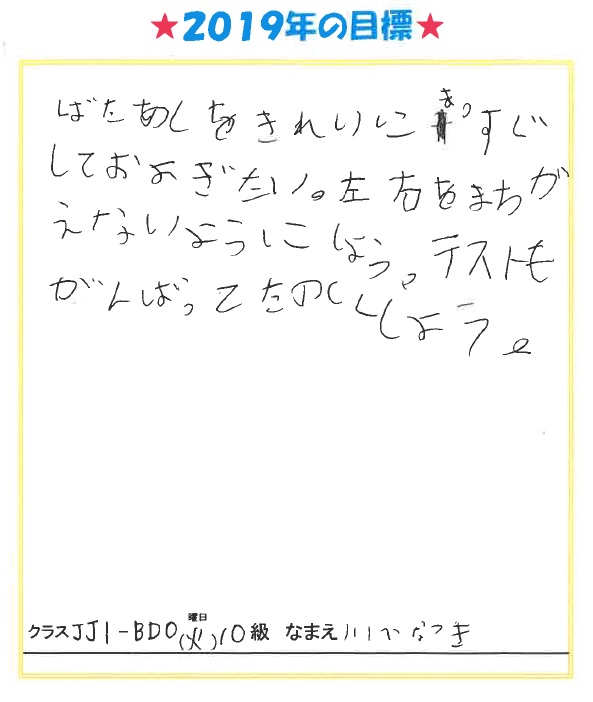 ★2019年の目標★
ばたあしをきれいにまっすぐ
しておよぎたい。左右をまちが
えないようにしよう。テストも
がんばってたのしくしよう。
クラスJJ1-BD0(火)曜日10級 なまえ川べなつき